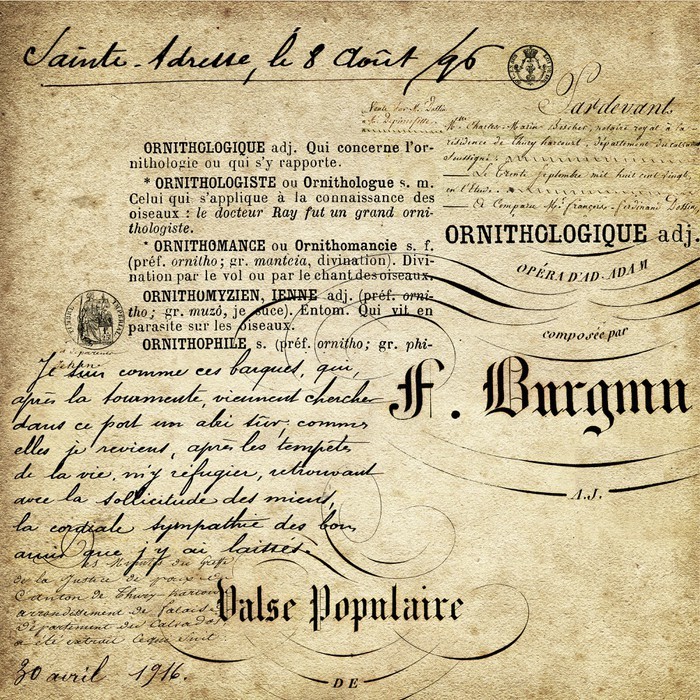 Sainte-Adresse, le 8 Août /96
Pardevant
Me Charles-Marin Boscher, notaire royal à la
résidence de Thury harcourt, département du calvados
Soussigné
Le Trente Septembre mil huit cent vingt,
en l'Etude
A Comparu Mr françois-ferdinand
ORNITHOLOGIQUE adj. Qui concerne l'or-
nithologie ou qui s'y rapporte.
* ORNITHOLOGISTE ou Ornithologue s. m.
Celui qui s'applique à la connaissance des
oiseaux : le docteur Ray fut un grand orni-
thologiste.
* ORNITHOMANCE ou Ornithomancie s. f.
(préf. ornitho ; gr. manteia, divination). Divi-
nation par le vol ou par le chant des oiseaux.
ORNITHOMYZIEN, IENNE adj. (préf. orni-
tho ; gr. muzô, je suce). Entom. Qui vit en
parasite sur les oiseaux.
ORNITHOPHILE, s. (préf. ornitho ; gr. phi-
ORNITHOLOGIQUE adj.
OPÉRA D'AD. ADAM
composée par
F. Burgmu
A.J.
Je suis comme ces barques, qui,
après la tourmente, viennent chercher
dans ce port un abri sûr; comme
elles je reviens, après les tempêtes
de la vie, m'y réfugier, retrouvant
avec la sollicitude des miens,
la cordiale sympathie des bons
amis que j'y ai laissés.
de la Justice de paix
Canton de Thury harcourt
arrondissement de falaise
Département du Calvados
a été extrait ce que suit
Valse Populaire
30 avril 1916.
DE